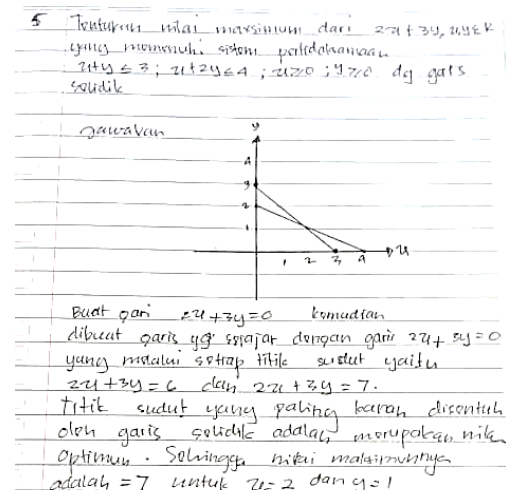 5 Tentukan nilai maksimum dari 2x + 3y, x,y ∈ R
yang memenuhi sistem pertidaksamaan
x+y ≤ 3 ; x+2y ≤ 4 ; x ≥ 0 ; y ≥ 0 dg garis
selidik
Jawaban
y
4
3
2
1
1 2 3 4 x
Buat gari 2x + 3y = 0 kemudian
dibuat garis yg sejajar dengan garis 2x + 3y = 0
yang melalui setiap titik sudut yaitu
2x + 3y = 6 dan 2x + 3y = 7.
Titik sudut yang paling kanan disentuh
oleh garis selidik adalah merupakan nilai
optimum. Sehingga nilai maksimumnya
adalah = 7 untuk x = 2 dan y = 1